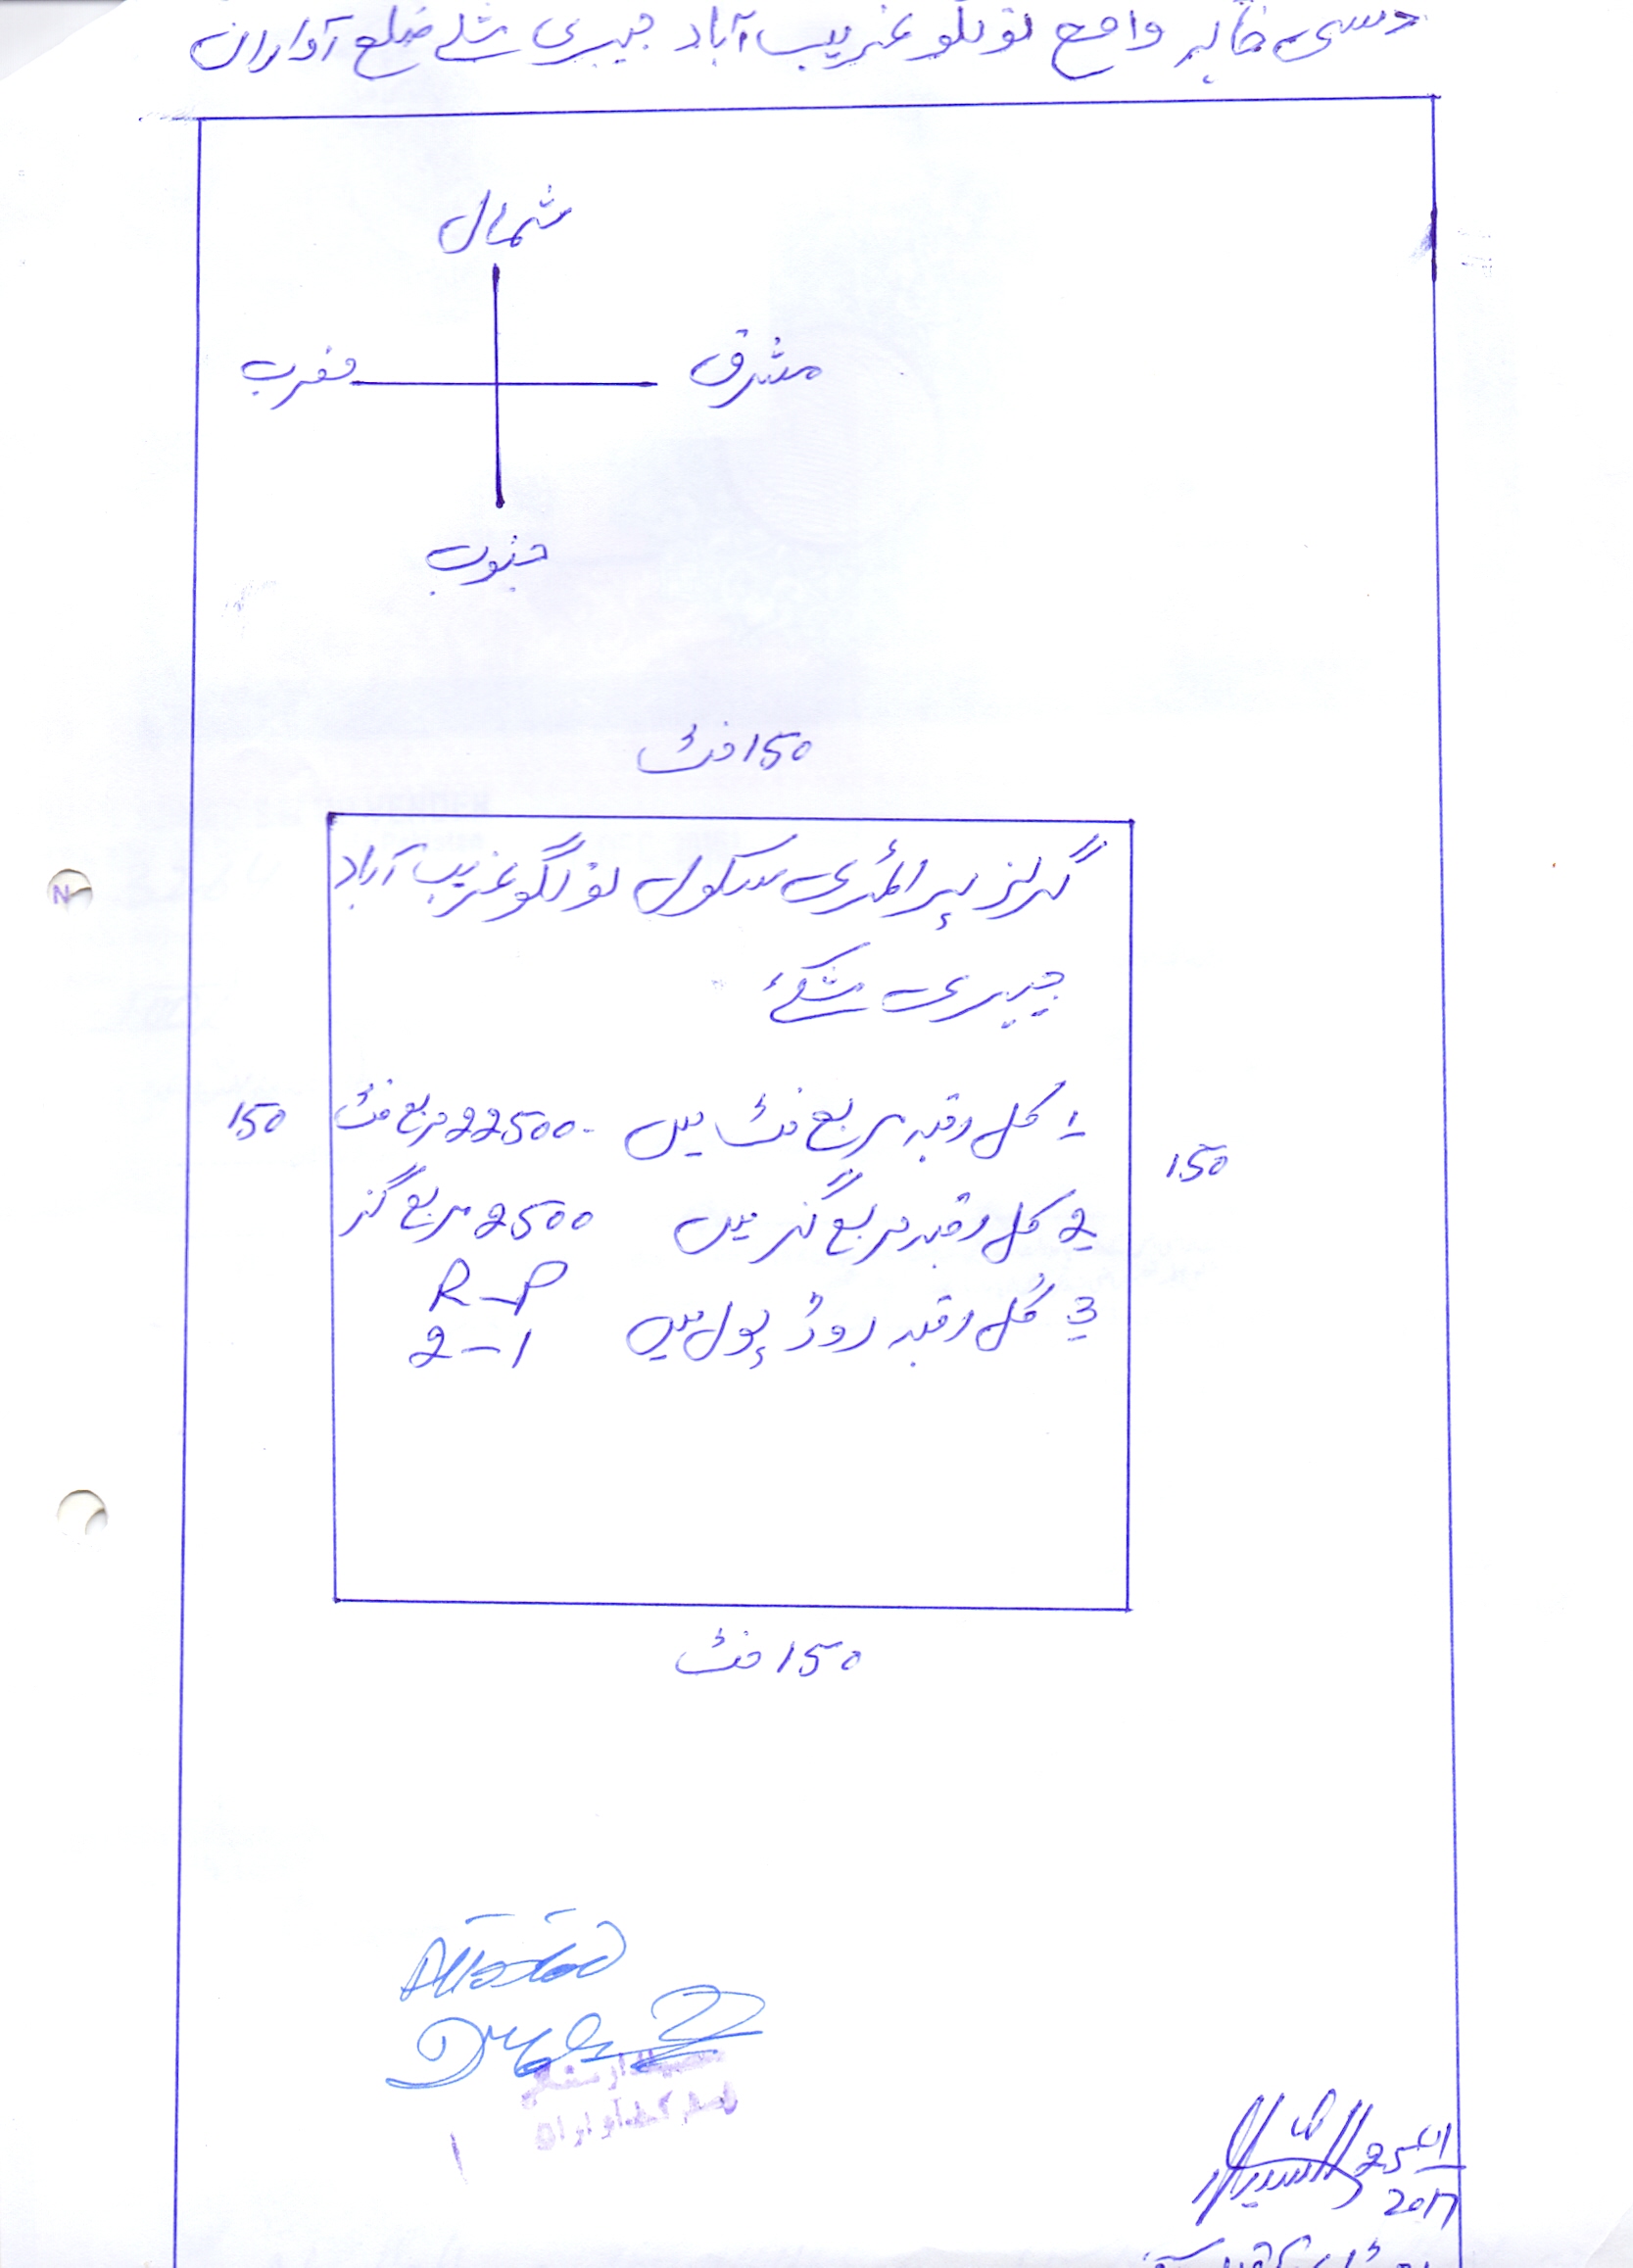 دستی خاکہ واقع نونگو غریب آباد جیبری مشکے ضلع آواران
شمال
مغرب
مشرق
جنوب
150 فٹ
گرلز پرائمری سکول نونگو غریب آباد
جیبری مشکے
1 کل رقبہ مربع فٹ میں - 22500 مربع فٹ
2 کل رقبہ مربع گز میں 2500 مربع گز
R-P
3 کل رقبہ روڈ پول میں 2-1
150
150
150 فٹ
Attested
تحصیلدار مشکے
ڈسٹرکٹ آواران
25
2017